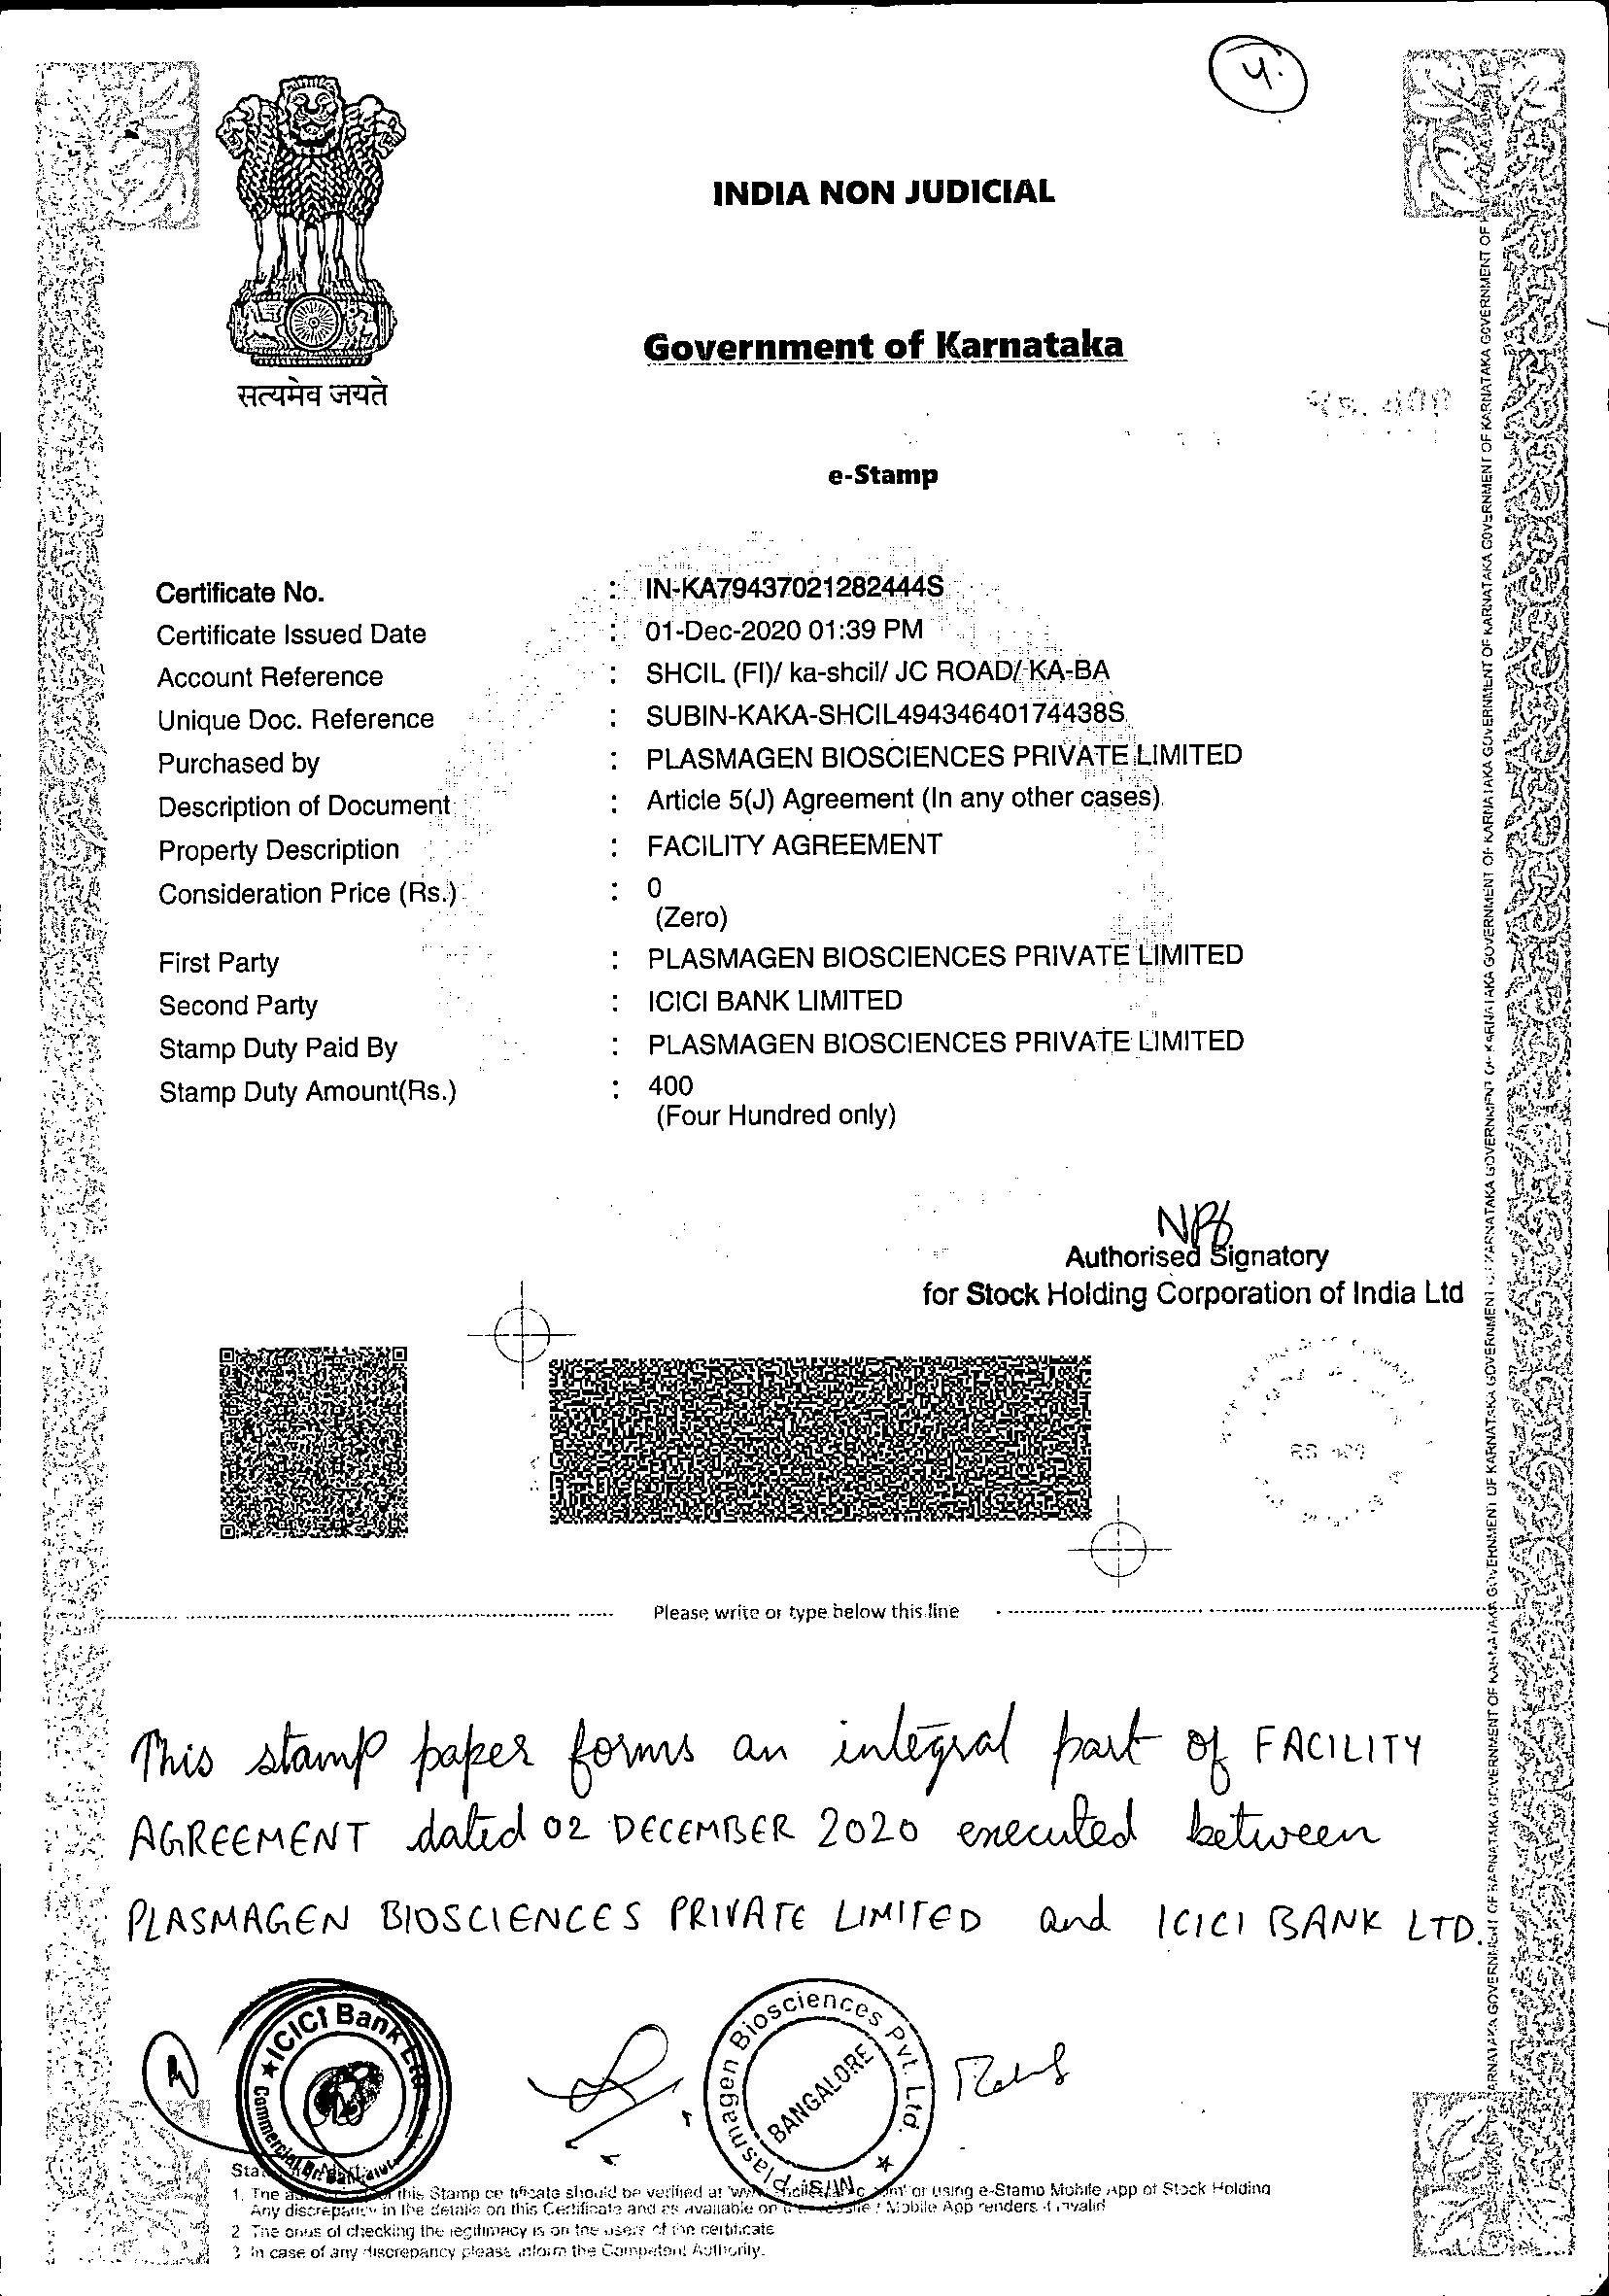 4.
INDIA NON JUDICIAL
Government of Karnataka
सत्यमेव जयते
e-Stamp
Certificate No. : IN-KA79437021282444S
Certificate Issued Date : 01-Dec-2020 01:39 PM
Account Reference : SHCIL (FI)/ ka-shcil/ JC ROAD/ KA-BA
Unique Doc. Reference : SUBIN-KAKA-SHCIL49434640174438S
Purchased by : PLASMAGEN BIOSCIENCES PRIVATE LIMITED
Description of Document : Article 5(J) Agreement (In any other cases)
Property Description : FACILITY AGREEMENT
Consideration Price (Rs.) : 0
(Zero)
First Party : PLASMAGEN BIOSCIENCES PRIVATE LIMITED
Second Party : ICICI BANK LIMITED
Stamp Duty Paid By : PLASMAGEN BIOSCIENCES PRIVATE LIMITED
Stamp Duty Amount(Rs.) : 400
(Four Hundred only)
Authorised Signatory
for Stock Holding Corporation of India Ltd
Please write or type below this line
This stamp paper forms an integral part of FACILITY
AGREEMENT dated 02 DECEMBER 2020 executed between
PLASMAGEN BIOSCIENCES PRIVATE LIMITED and ICICI BANK LTD.
ICICI Bank Ltd
Plasmagen Biosciences Pvt. Ltd.
BANGALORE
1. The this Stamp certificate should be verified at or using e-Stamp Mobile App of Stock Holding
Any discrepancy in the details on this Certificate and as available on the website / Mobile App renders it invalid
2 The onus of checking the legitimacy is on the users of the certificate
3 In case of any discrepancy please inform the Competent Authority.
GOVERNMENT OF KARNATAKA GOVERNMENT OF KARNATAKA GOVERNMENT OF KARNATAKA